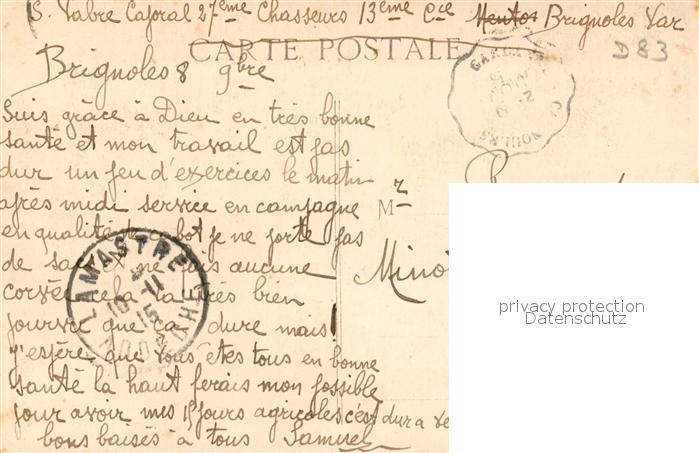 S. Vabre Caporal 27eme Chasseurs 13eme Cie Menton Brignoles Var
CARTE POSTALE
D83
Brignoles 8 9bre
Suis grâce à Dieu en très bonne
santé et mon travail est pas
dur un peu d'exercices le matin
après midi service en campagne
en qualité de cabot je ne porte pas
de sac et ne fais aucune
corvée cela va très bien
pourvu que ça dure mais
j'espère que vous êtes tous en bonne
santé la haut ferais mon possible
pour avoir mes 15 jours agricoles c'est dur a
bons baisés à tous Samuel
LAMASTRE
ARDECHE
Mr
Mino
privacy protection
Datenschutz